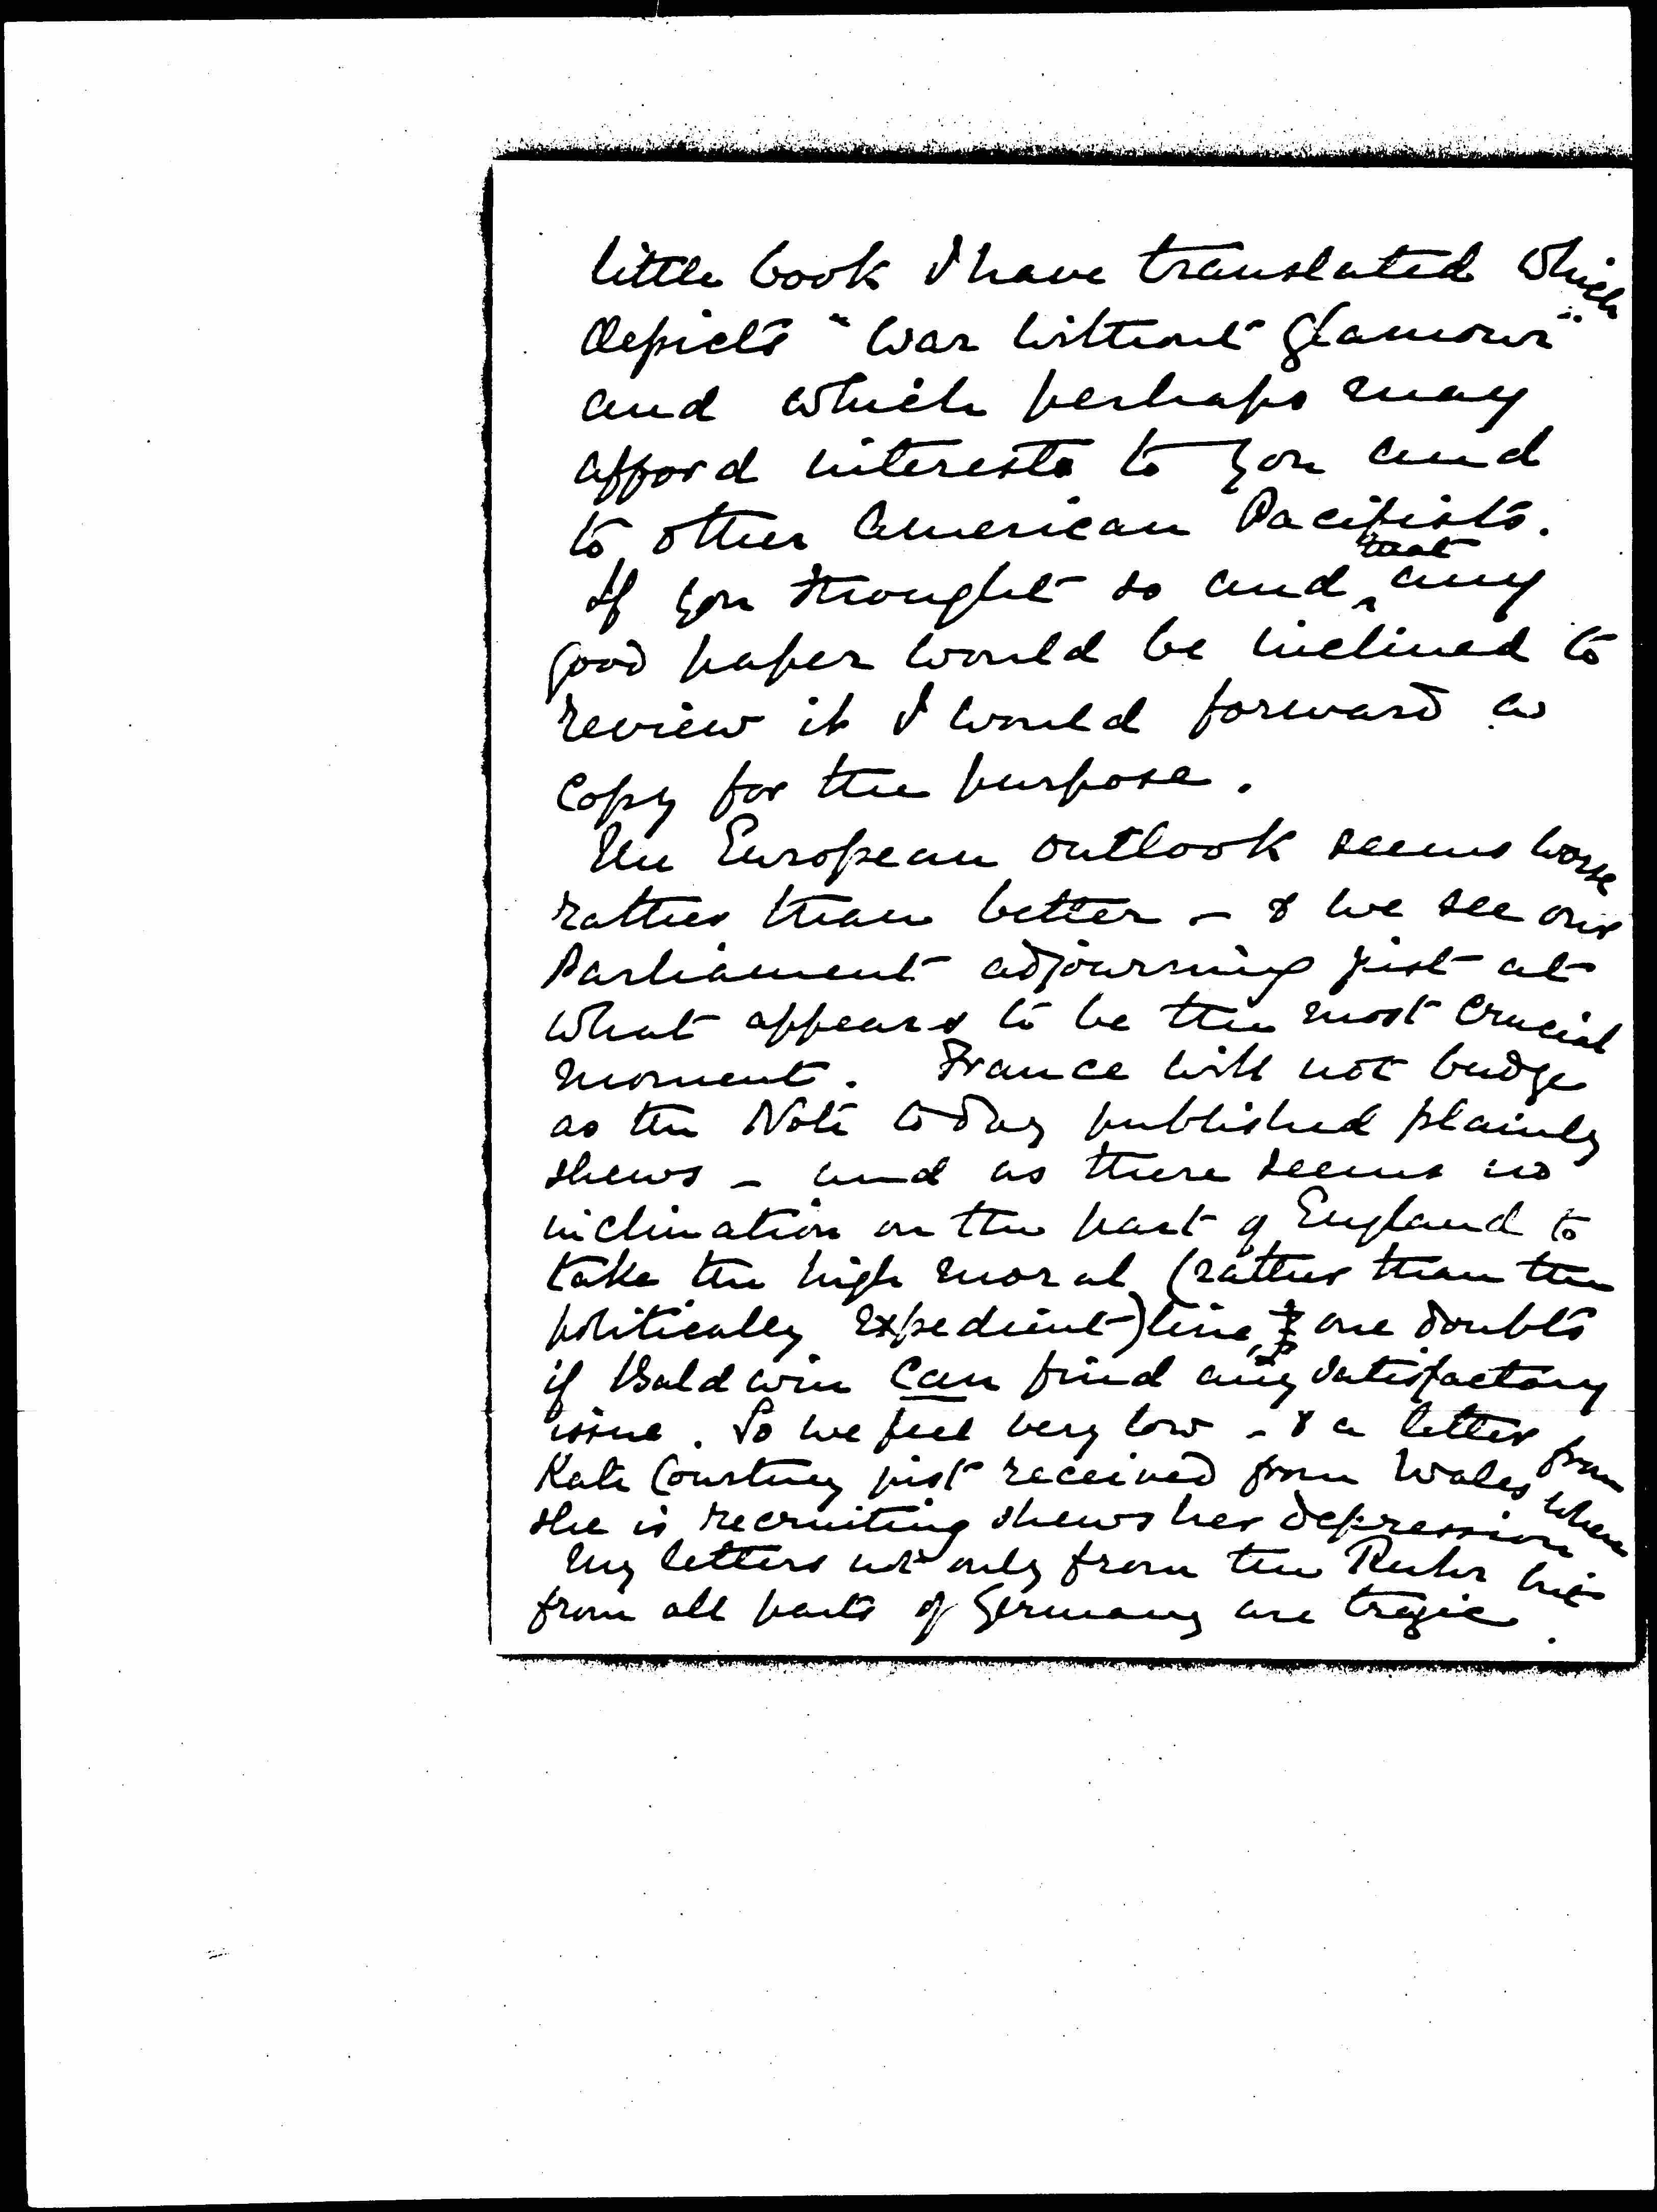 little book I have translated which
depicts "War without Glamour"
and which perhaps may
afford interest to you and
to other American Pacifists.
If you thought so and that any
good paper would be inclined to
review it I would forward a
copy for the purpose.
The European outlook seems worse
rather than better - & we see our
Parliament adjourning just at
what appears to be the most crucial
moment. France will not budge
as the Note today published plainly
shews - and as there seems no
inclination on the part of England to
take the high moral (rather than the
politically expedient) line, one doubts
if Baldwin can find any satisfactory
issue. So we feel very low - & a letter from
Kate Courtney just received from Wales where
she is recruiting shews her depression
My letters not only from the Ruhr but
from all parts of Germany are tragic.